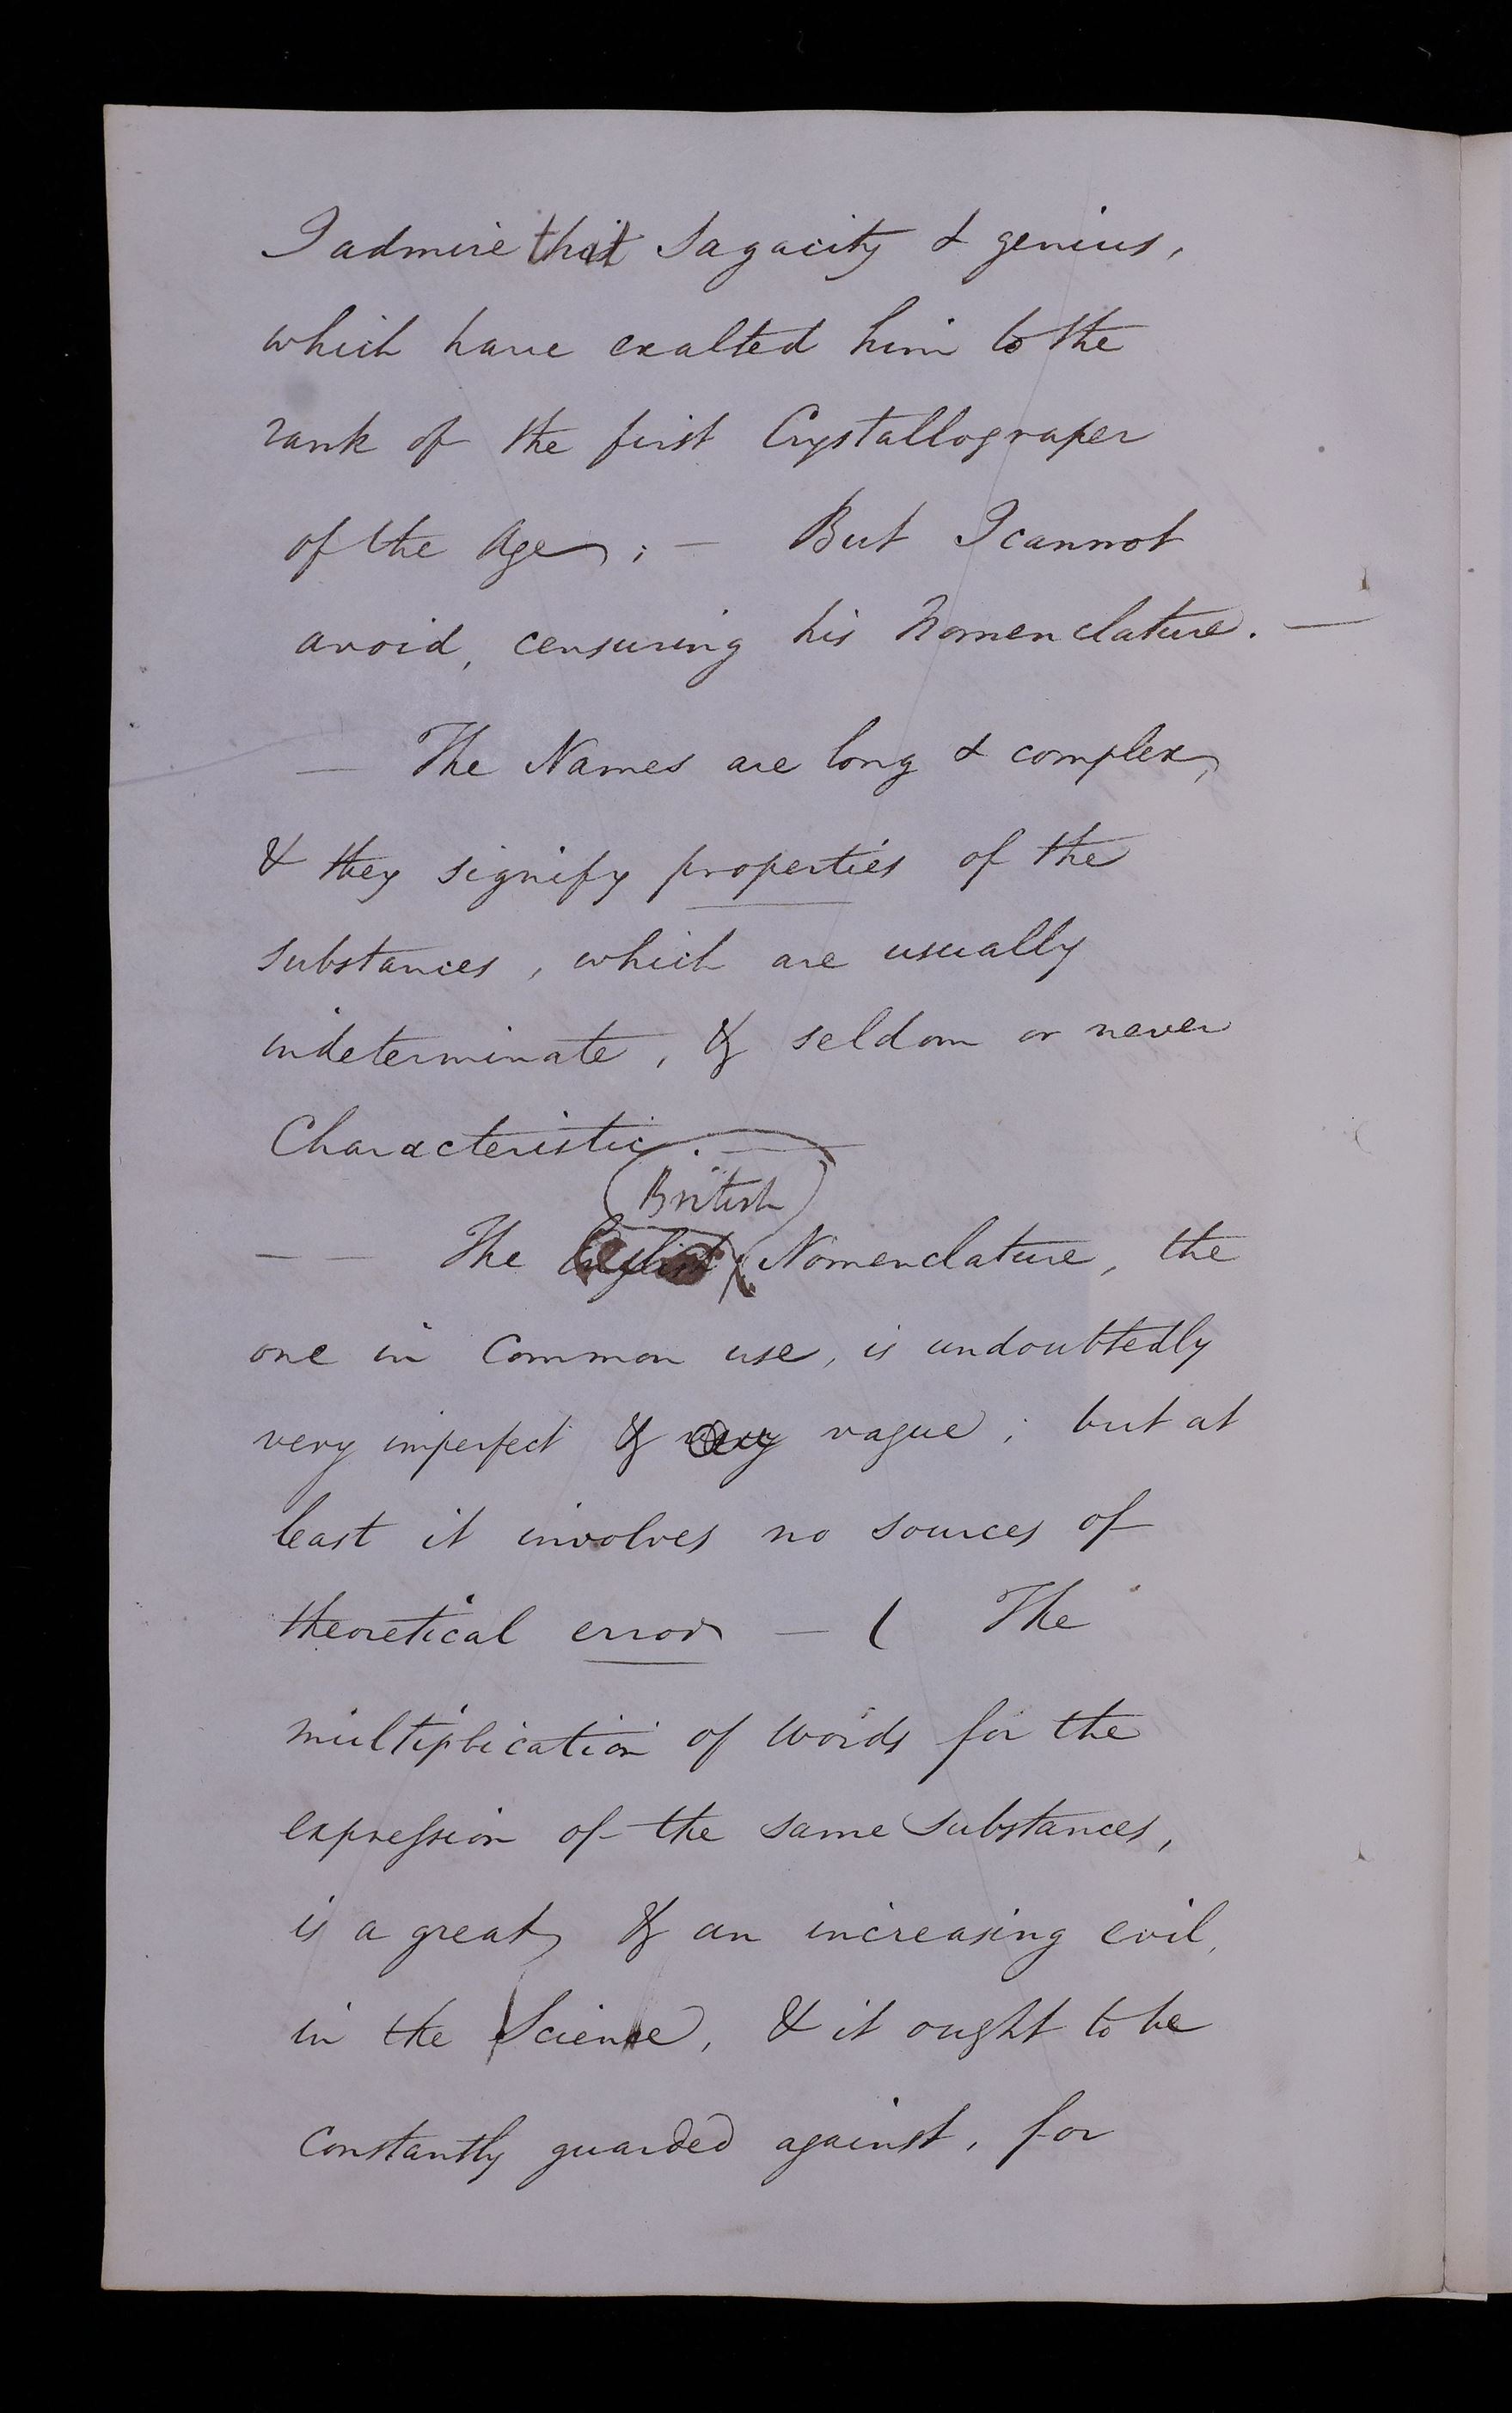 I admire that Sagacity & genius,
which have exalted him to the
rank of the first Crystallograper
of the Age; — But I cannot
avoid, censuring his Nomenclature. —
— The Names are long & complex,
& they signify properties of the
substances, which are usually
indeterminate, & seldom or never
Characteristic. —
British
— — The English Nomenclature, the
one in Common use, is undoubtedly
very imperfect & very vague; but at
least it involves no sources of
theoretical error — ( The
multiplication of words for the
expression of the same substances,
is a great, & an increasing evil,
in the Science, & it ought to be
Constantly guarded against, for